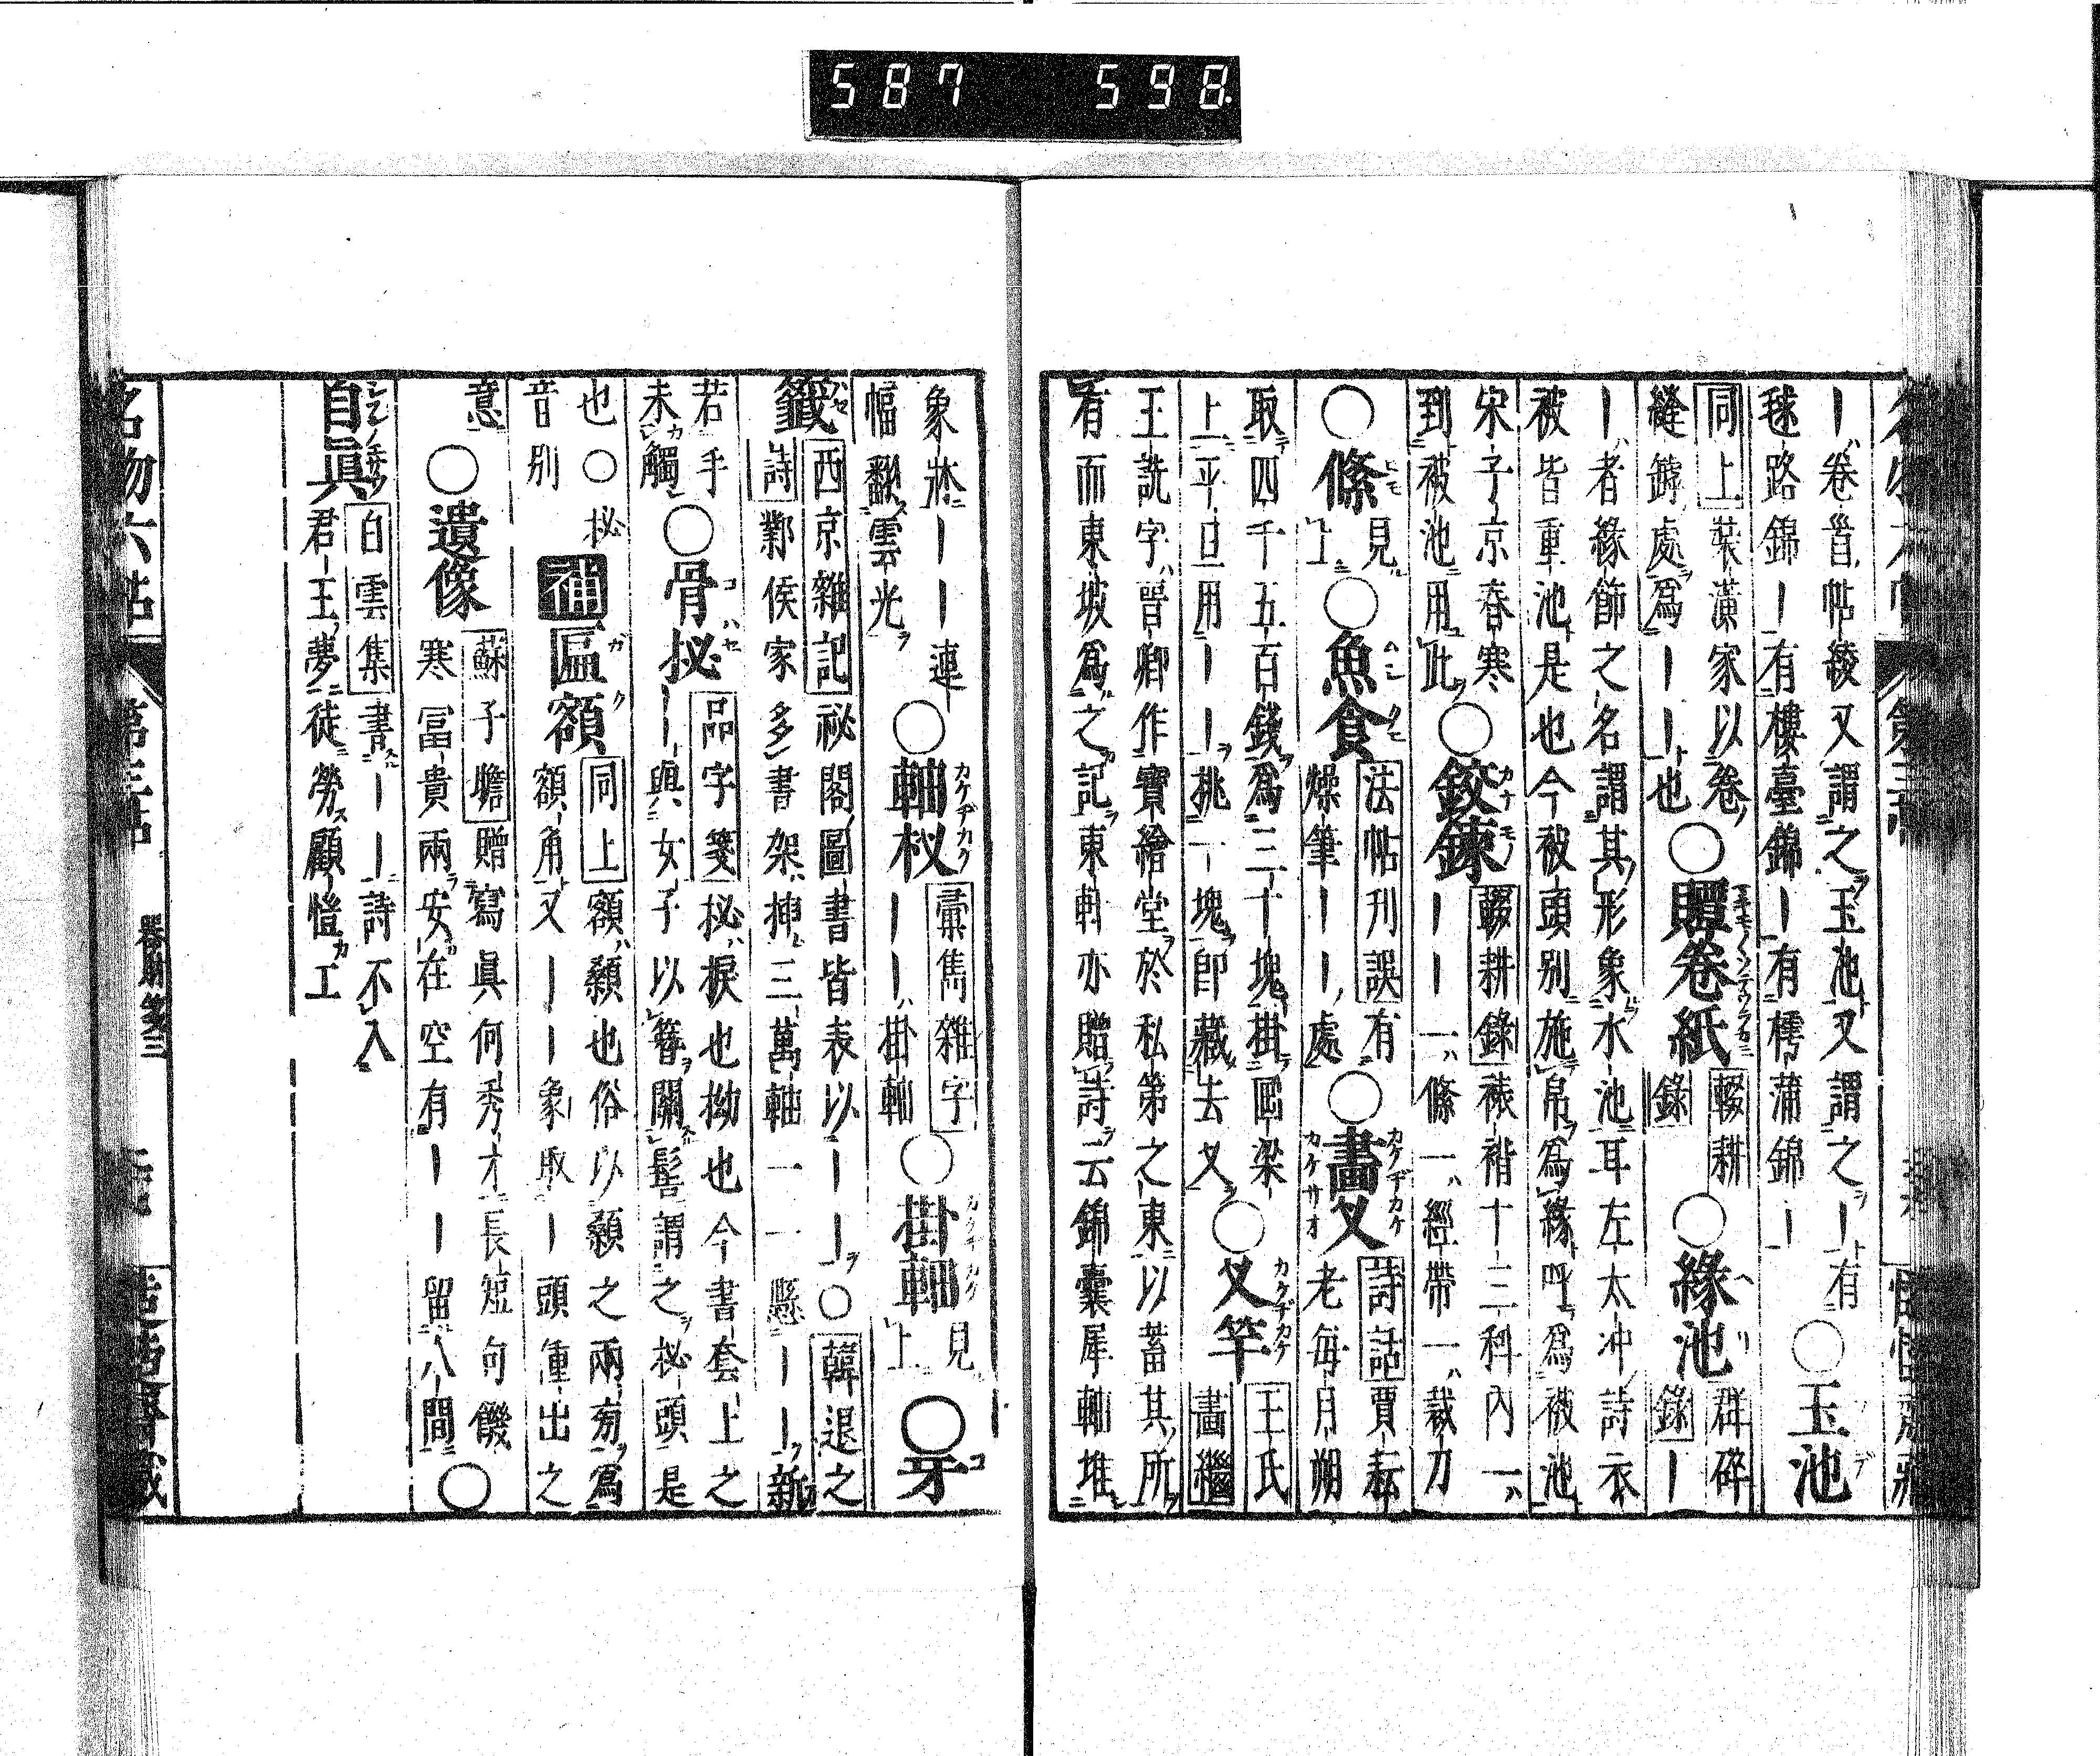 587 598
｜卷首帖綾又謂之玉池又謂之｜有
毬路錦｜有樓臺錦｜有樗蒲錦｜
○玉池
同上 裝潢家以卷
縫罅處爲｜｜也
○贉卷紙
輟耕
錄
○緣池
群碎
錄｜
｜者緣飾之名謂其形象水池耳左太冲詩衣
被皆重池是也今被頭別施帛爲緣呼爲被池
宋子京春寒
到被池用此
○鉸鍊
輟耕錄 裱褙十三科內一
｜｜一條一經帶一裁刀
○條
見上
○魚食
法帖刊誤 有
燥筆｜｜處
○畫叉
詩話 賈耘
老每月朔
取四千五百錢爲三十塊掛屋梁
上平旦用｜｜挑一塊卽藏去叉
○叉竿
王氏
畵繼
王詵字晉卿作寶繪堂於私第之東以蓄其所
有而東坡爲之記東軒亦贈詩云錦囊犀軸堆
象牀｜｜連
幅翻雲光
○軸杈
彙雋雜字
｜｜掛軸
○掛軸
見上
○牙
籤
西京雜記 祕閣圖書皆表以｜｜○韓退之
詩 鄴侯家多書架揷三萬軸一一懸｜｜新
若手
未觸
○骨㧙
品字箋 㧙捩也拗也今書套上之
｜與女子以簪關髻謂之㧙頭是
也○㧙
音別
補
匾額
同上 額顙也俗以顙之兩旁爲
額角又｜｜象取｜頭衝出之
意
○遺像
蘇子瞻 贈寫眞何秀才長短句饑
寒冨貴兩安在空有｜｜留人間
○
自眞
白雲集 書｜｜詩不入
君王夢徒勞顧愷工
名物六帖
第三帖
器財箋三